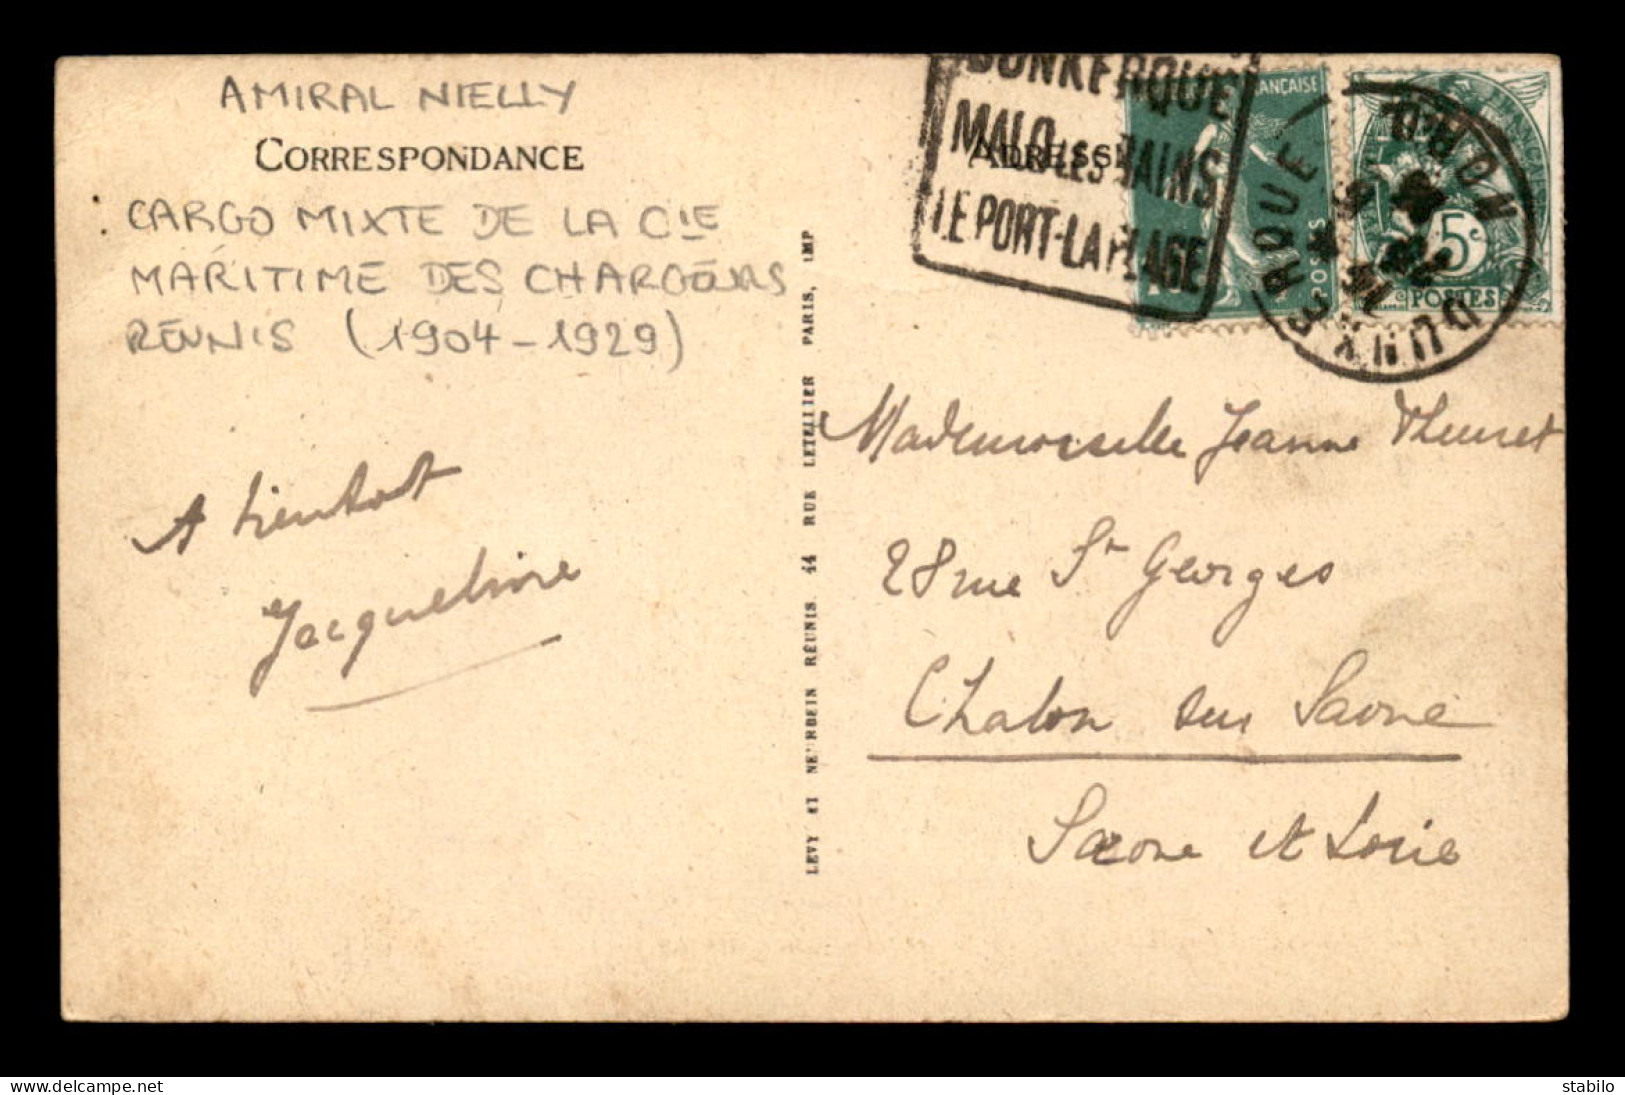 AMIRAL NIELLY
CORRESPONDANCE
CARGO MIXTE DE LA CIE
MARITIME DES CHARGEURS
REUNIS (1904-1929)
A bientot
Jacqueline
LEVY ET NEURDEIN RÉUNIS. 44 RUE LETELLIER PARIS, IMP
DUNKERQUE
MALO LES BAINS
LE PORT-LA PLAGE
ADRESSE
FRANÇAISE
POSTES
DUNKERQUE
NORD
5c
POSTES
Mademoiselle Jeanne
28 rue St Georges
Chalon sur Saone
Saone et Loire
delcampe.net
stabilo